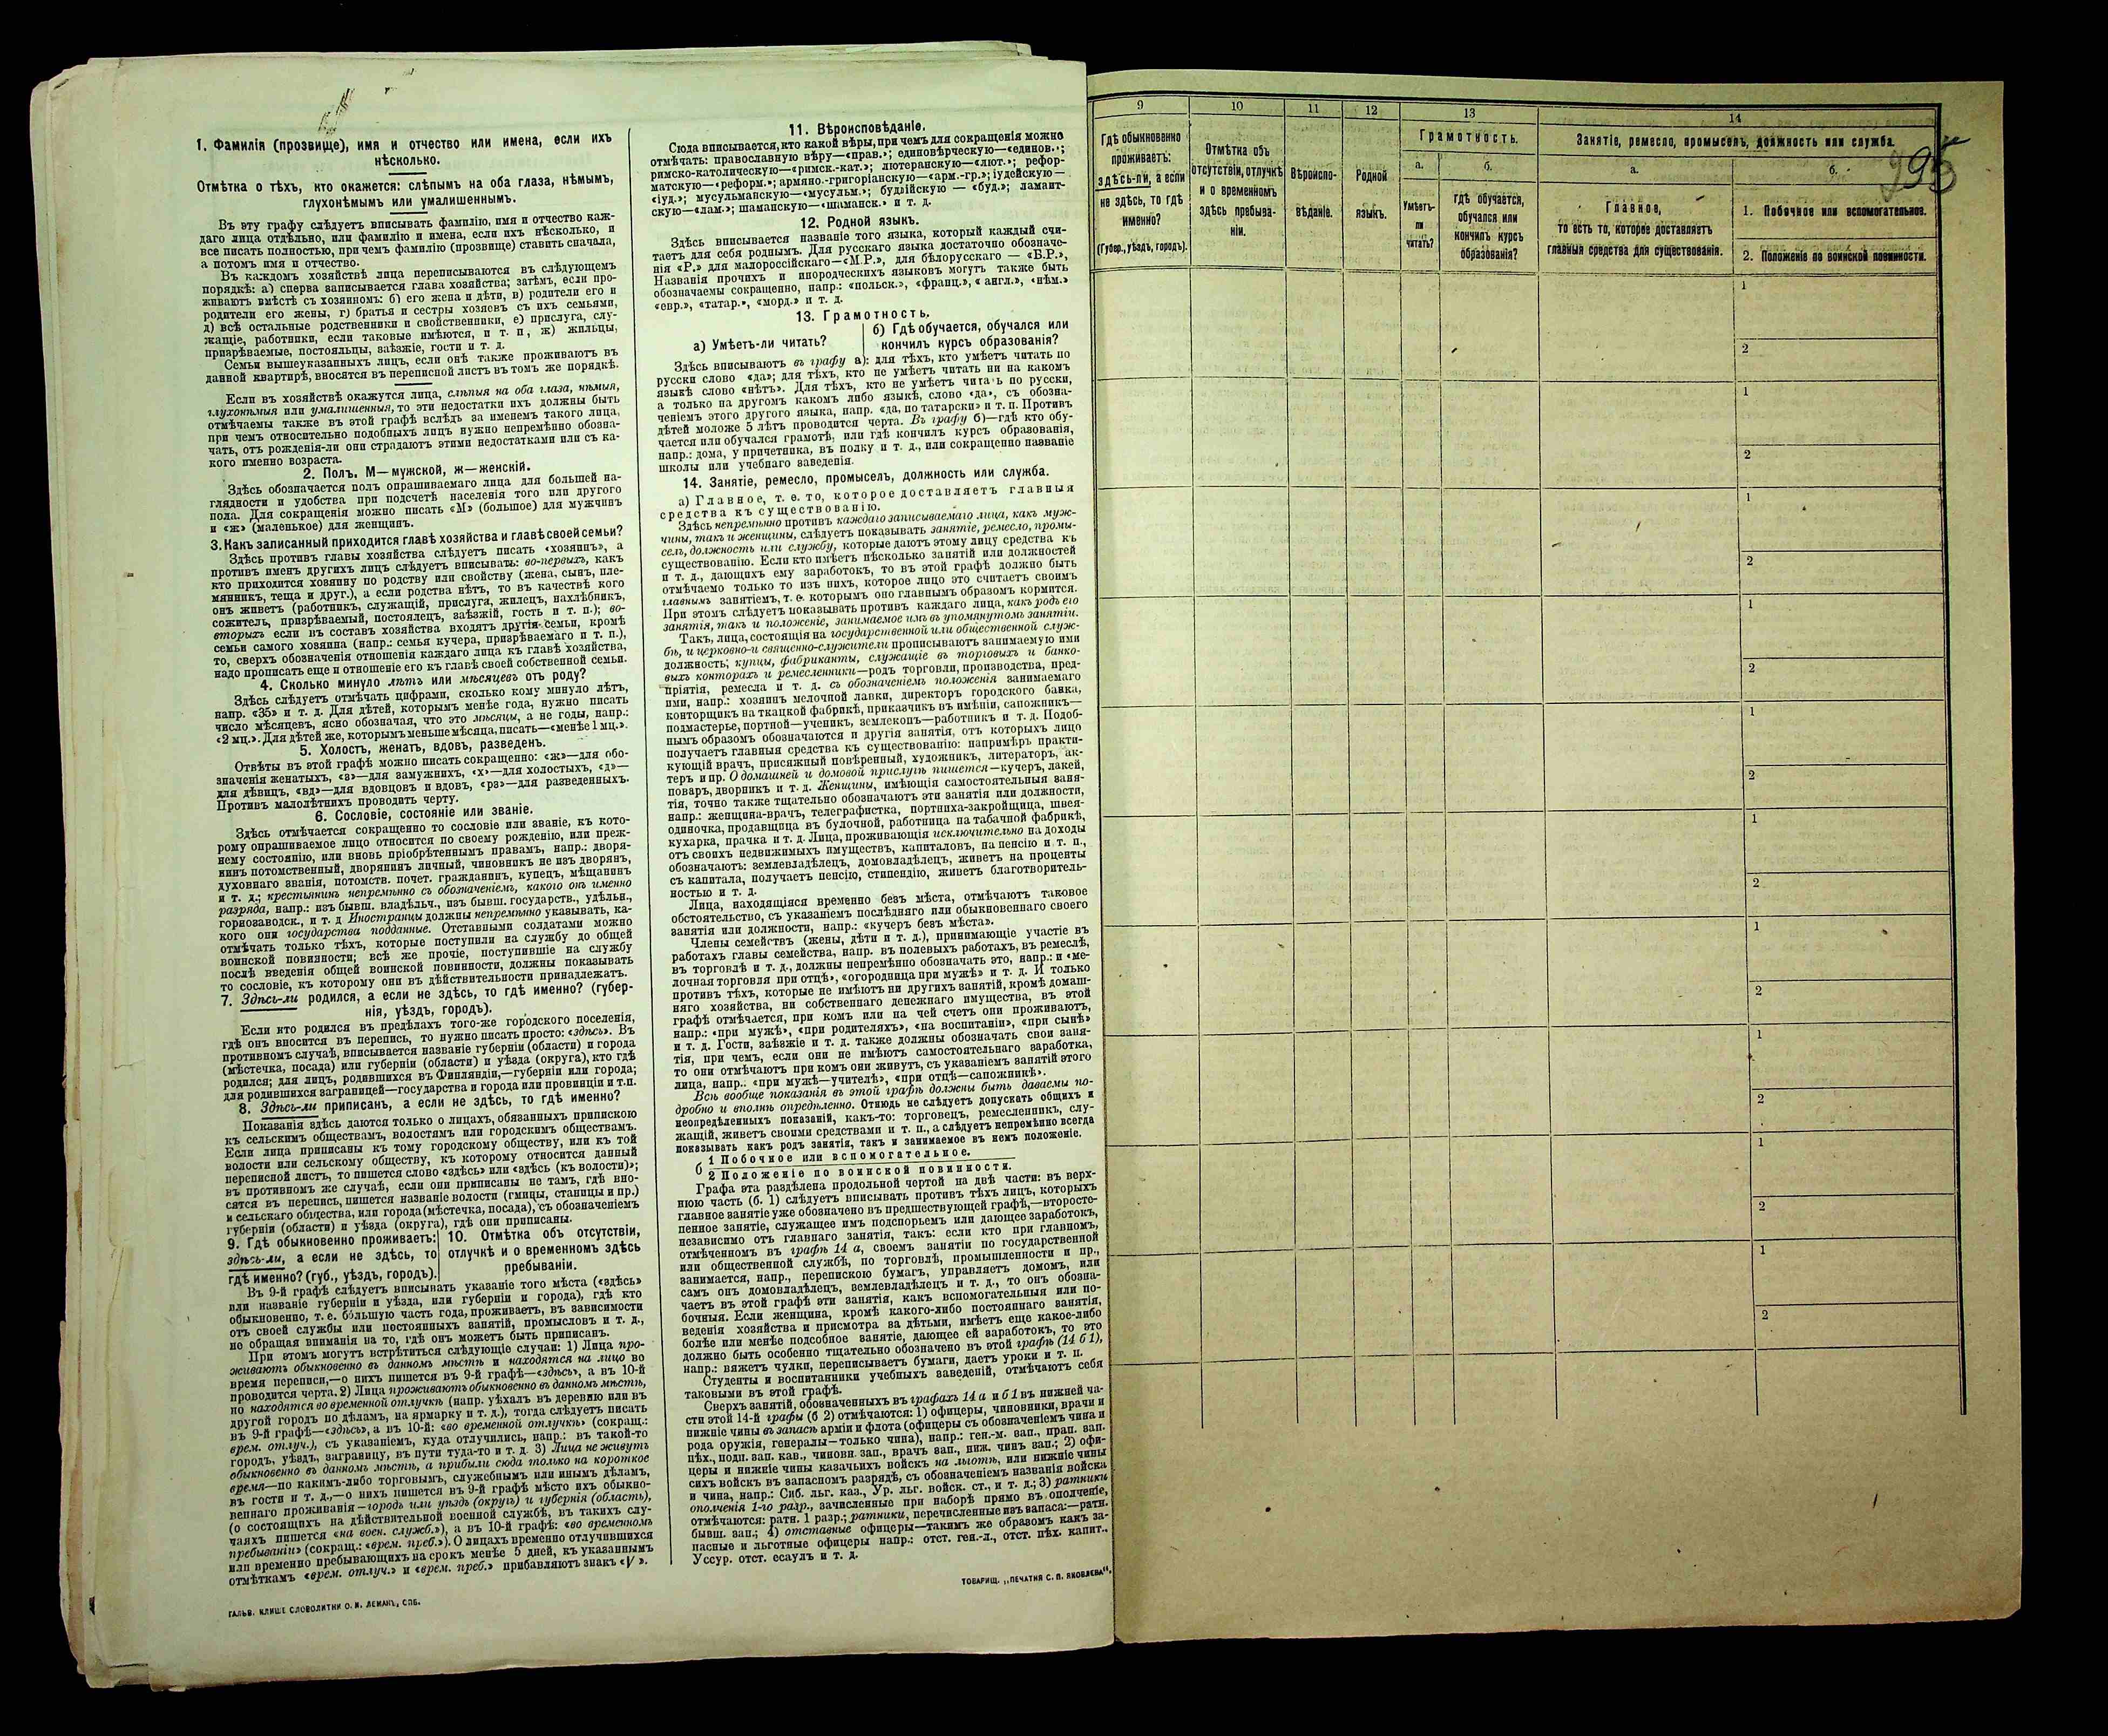 1. Фамилія (прозвище), имя и отчество или имена, если ихъ
нѣсколько.
Отмѣтка о тѣхъ, кто окажется: слѣпымъ на оба глаза, нѣмымъ,
глухонѣмымъ или умалишеннымъ.
Въ эту графу слѣдуетъ вписывать фамилію, имя и отчество каж-
даго лица отдѣльно, или фамилію и имена, если ихъ нѣсколько, и
все писать полностью, при чемъ фамилію (прозвище) ставить сначала,
а потомъ имя и отчество.
Въ каждомъ хозяйствѣ лица переписываются въ слѣдующемъ
порядкѣ: а) сперва записывается глава хозяйства; затѣмъ, если про-
живаютъ вмѣстѣ съ хозяиномъ: б) его жена и дѣти, в) родители его и
родители его жены, г) братья и сестры хозяевъ съ ихъ семьями,
д) всѣ остальные родственники и свойственники, е) прислуга, слу-
жащіе, работники, если таковые имѣются, и т. п, ж) жильцы,
призрѣваемые, постояльцы, заѣзжіе, гости и т. д.
Семьи вышеуказанныхъ лицъ, если онѣ также проживаютъ въ
данной квартирѣ, вносятся въ переписной листъ въ томъ же порядкѣ.
Если въ хозяйствѣ окажутся лица, слѣпыя на оба глаза, нѣмыя,
глухонѣмыя или умалишенныя, то эти недостатки ихъ должны быть
отмѣчаемы также въ этой графѣ вслѣдъ за именемъ такого лица,
при чемъ относительно подобныхъ лицъ нужно непремѣнно обозна-
чать, отъ рожденія-ли они страдаютъ этими недостатками или съ ка-
кого именно возраста.
2. Полъ. М—мужской, ж—женскій.
Здѣсь обозначается полъ опрашиваемаго лица для большей на-
глядности и удобства при подсчетѣ населенія того или другого
пола. Для сокращенія можно писать «М» (большое) для мужчинъ
и «ж» (маленькое) для женщинъ.
3. Какъ записанный приходится главѣ хозяйства и главѣ своей семьи?
Здѣсь противъ главы хозяйства слѣдуетъ писать «хозяинъ», а
противъ именъ другихъ лицъ слѣдуетъ вписывать: во-первыхъ, какъ
кто приходится хозяину по родству или свойству (жена, сынъ, пле-
мянникъ, теща и друг.), а если родства нѣтъ, то въ качествѣ кого
онъ живетъ (работникъ, служащій, прислуга, жилецъ, нахлѣбникъ,
сожитель, призрѣваемый, постоялецъ, заѣзжій, гость и т. п.); во-
вторыхъ если въ составъ хозяйства входятъ другія семьи, кромѣ
семьи самого хозяина (напр.: семья кучера, призрѣваемаго и т. п.),
то, сверхъ обозначенія отношенія каждаго лица къ главѣ хозяйства,
надо прописать еще и отношеніе его къ главѣ своей собственной семьи.
4. Сколько минуло лѣтъ или мѣсяцевъ отъ роду?
Здѣсь слѣдуетъ отмѣчать цифрами, сколько кому минуло лѣтъ,
напр. «35» и т. д. Для дѣтей, которымъ менѣе года, нужно писать
число мѣсяцевъ, ясно обозначая, что это мѣсяцы, а не годы, напр.:
«2 мц.». Для дѣтей же, которымъ меньше мѣсяца, писать—«менѣе 1 мц.».
5. Холостъ, женатъ, вдовъ, разведенъ.
Отвѣты въ этой графѣ можно писать сокращенно: «ж»—для обо-
значенія женатыхъ, «з»—для замужнихъ, «х»—для холостыхъ, «д»—
для дѣвицъ, «вд»—для вдовцовъ и вдовъ, «рз»—для разведенныхъ.
Противъ малолѣтнихъ проводить черту.
6. Сословіе, состояніе или званіе.
Здѣсь отмѣчается сокращенно то сословіе или званіе, къ кото-
рому опрашиваемое лицо относится по своему рожденію, или преж-
нему состоянію, или вновь пріобрѣтеннымъ правамъ, напр.: дворя-
нинъ потомственный, дворянинъ личный, чиновникъ не изъ дворянъ,
духовнаго званія, потомств. почет. гражданинъ, купецъ, мѣщанинъ
и т. д.; крестьянинъ непремѣнно съ обозначеніемъ, какого онъ именно
разряда, напр.: изъ бывш. владѣльч., изъ бывш. государств., удѣльн.,
горнозаводск., и т. д Иностранцы должны непремѣнно указывать, ка-
кого они государства подданные. Отставными солдатами можно
отмѣчать только тѣхъ, которые поступили на службу до общей
воинской повинности; всѣ же прочіе, поступившіе на службу
послѣ введенія общей воинской повинности, должны показывать
то сословіе, къ которому они въ дѣйствительности принадлежатъ.
7. Здѣсь-ли родился, а если не здѣсь, то гдѣ именно? (губер-
нія, уѣздъ, городъ).
Если кто родился въ предѣлахъ того-же городского поселенія,
гдѣ онъ вносится въ перепись, то нужно писать просто: «здѣсь». Въ
противномъ случаѣ, вписывается названіе губерніи (области) и города
(мѣстечка, посада) или губерніи (области) и уѣзда (округа), кто гдѣ
родился; для лицъ, родившихся въ Финляндіи,—губерніи или города;
для родившихся заграницей—государства и города или провинціи и т.п.
8. Здѣсь-ли приписанъ, а если не здѣсь, то гдѣ именно?
Показанія здѣсь даются только о лицахъ, обязанныхъ припискою
къ сельскимъ обществамъ, волостямъ или городскимъ обществамъ.
Если лица приписаны къ тому городскому обществу, или къ той
волости или сельскому обществу, къ которому относится данный
переписной листъ, то пишется слово «здѣсь» или «здѣсь (къ волости)»;
въ противномъ же случаѣ, если они приписаны не тамъ, гдѣ вно-
сятся въ перепись, пишется названіе волости (гмины, станицы и пр.)
и сельскаго общества, или города (мѣстечка, посада), съ обозначеніемъ
губерніи (области) и уѣзда (округа), гдѣ они приписаны.
9. Гдѣ обыкновенно проживаетъ:
здѣсь-ли, а если не здѣсь, то
гдѣ именно? (губ., уѣздъ, городъ).
10. Отмѣтка объ отсутствіи,
отлучкѣ и о временномъ здѣсь
пребываніи.
Въ 9-й графѣ слѣдуетъ вписывать указаніе того мѣста («здѣсь»
или названіе губерніи и уѣзда, или губерніи и города), гдѣ кто
обыкновенно, т. е. бо́льшую часть года, проживаетъ, въ зависимости
отъ своей службы или постоянныхъ занятій, промысловъ и т. д.,
не обращая вниманія на то, гдѣ онъ можетъ быть приписанъ.
При этомъ могутъ встрѣтиться слѣдующіе случаи: 1) Лица про-
живаютъ обыкновенно въ данномъ мѣстѣ и находятся на лицо во
время переписи,—о нихъ пишется въ 9-й графѣ—«здѣсь», а въ 10-й
проводится черта. 2) Лица проживаютъ обыкновенно въ данномъ мѣстѣ,
но находятся во временной отлучкѣ (напр. уѣхалъ въ деревню или въ
другой городъ по дѣламъ, на ярмарку и т. д.), тогда слѣдуетъ писать
въ 9-й графѣ—«здѣсь», а въ 10-й: «во временной отлучкѣ» (сокращ.:
врем. отлуч.), съ указаніемъ, куда отлучились, напр.: въ такой-то
городъ, уѣздъ, заграницу, въ пути туда-то и т. д. 3) Лица не живутъ
обыкновенно въ данномъ мѣстѣ, а прибыли сюда только на короткое
время—по какимъ-либо торговымъ, служебнымъ или инымъ дѣламъ,
въ гости и т. д.,—о нихъ пишется въ 9-й графѣ мѣсто ихъ обыкно-
веннаго проживанія—городъ или уѣздъ (округъ) и губернія (область),
(о состоящихъ на дѣйствительной военной службѣ, въ такихъ слу-
чаяхъ пишется «на воен. служб.»), а въ 10-й графѣ: «во временномъ
пребываніи» (сокращ.: «врем. преб.»). О лицахъ временно отлучившихся
или временно пребывающихъ на срокъ менѣе 5 дней, къ указаннымъ
отмѣткамъ «врем. отлуч.» и «врем. преб.» прибавляютъ знакъ «V».
ГАЛЬВ. КЛИШЕ СЛОВОЛИТНИ О. И. ЛЕМАНЪ, СПБ.
11. Вѣроисповѣданіе.
Сюда вписывается, кто какой вѣры, при чемъ для сокращенія можно
отмѣчать: православную вѣру—«прав.»; единовѣрческую—«единов.»;
римско-католическую—«римск.-кат.»; лютеранскую—«лют.»; рефор-
матскую—«реформ.»; армяно.-григоріанскую—«арм.-гр.»; іудейскую—
«іуд.»; мусульманскую—«мусульм.»; буддійскую — «буд.»; ламаит-
скую—«лам.»; шаманскую—«шаманск.» и т. д.
12. Родной языкъ.
Здѣсь вписывается названіе того языка, который каждый счи-
таетъ для себя роднымъ. Для русскаго языка достаточно обозначе-
нія «Р.» для малороссійскаго—«М.Р.», для бѣлорусскаго — «Б.Р.»,
Названія прочихъ и инородческихъ языковъ могутъ также быть
обозначаемы сокращенно, напр.: «польск.», «франц.», « англ.», «нѣм.»
«евр.», «татар.», «морд.» и т. д.
13. Грамотность.
а) Умѣетъ-ли читать?
б) Гдѣ обучается, обучался или
кончилъ курсъ образованія?
Здѣсь вписываютъ въ графу а): для тѣхъ, кто умѣетъ читать по
русски слово «да»; для тѣхъ, кто не умѣетъ читать ни на какомъ
языкѣ слово «нѣтъ». Для тѣхъ, кто не умѣетъ читать по русски,
а только на другомъ какомъ либо языкѣ, слово «да», съ обозна-
ченіемъ этого другого языка, напр. «да, по татарски» и т. п. Противъ
дѣтей моложе 5 лѣтъ проводится черта. Въ графу б)—гдѣ кто обу-
чается или обучался грамотѣ, или гдѣ кончилъ курсъ образованія,
напр.: дома, у причетника, въ полку и т. д., или сокращенно названіе
школы или учебнаго заведенія.
14. Занятіе, ремесло, промыселъ, должность или служба.
а) Главное, т. е. то, которое доставляетъ главныя
средства къ существованію.
Здѣсь непремѣнно противъ каждаго записываемаго лица, какъ муж-
чины, такъ и женщины, слѣдуетъ показывать занятіе, ремесло, промы-
селъ, должность или службу, которые даютъ этому лицу средства къ
существованію. Если кто имѣетъ нѣсколько занятій или должностей
и т. д., дающихъ ему заработокъ, то въ этой графѣ должно быть
отмѣчаемо только то изъ нихъ, которое лицо это считаетъ своимъ
главнымъ занятіемъ, т. е. которымъ оно главнымъ образомъ кормится.
При этомъ слѣдуетъ показывать противъ каждаго лица, какъ родъ его
занятія, такъ и положеніе, занимаемое имъ въ упомянутомъ занятіи.
Такъ, лица, состоящія на государственной или общественной служ-
бѣ, и церковно-и священно-служители прописываютъ занимаемую ими
должность; купцы, фабриканты, служащіе въ торговыхъ и банко-
выхъ конторахъ и ремесленники—родъ торговли, производства, пред-
пріятія, ремесла и т. д. съ обозначеніемъ положенія занимаемаго
ими, напр.: хозяинъ мелочной лавки, директоръ городского банка,
конторщикъ на ткацкой фабрикѣ, приказчикъ въ имѣніи, сапожникъ—
подмастерье, портной—ученикъ, землекопъ—работникъ и т. д. Подоб-
нымъ образомъ обозначаются и другія занятія, отъ которыхъ лицо
получаетъ главныя средства къ существованію: напримѣръ практи-
кующій врачъ, присяжный повѣренный, художникъ, литераторъ, ак-
теръ и пр. О домашней и домовой прислугѣ пишется—кучеръ, лакей,
поваръ, дворникъ и т. д. Женщины, имѣющія самостоятельныя заня-
тія, точно также тщательно обозначаютъ эти занятія или должности,
напр.: женщина-врачъ, телеграфистка, портниха-закройщица, швея-
одиночка, продавщица въ булочной, работница на табачной фабрикѣ,
кухарка, прачка и т. д. Лица, проживающія исключительно на доходы
отъ своихъ недвижимыхъ имуществъ, капиталовъ, на пенсію и т. п.,
обозначаютъ: землевладѣлецъ, домовладѣлецъ, живетъ на проценты
съ капитала, получаетъ пенсію, стипендію, живетъ благотворитель-
ностью и т. д.
Лица, находящіяся временно безъ мѣста, отмѣчаютъ таковое
обстоятельство, съ указаніемъ послѣдняго или обыкновеннаго своего
занятія или должности, напр.: «кучеръ безъ мѣста».
Члены семействъ (жены, дѣти и т. д.), принимающіе участіе въ
работахъ главы семейства, напр. въ полевыхъ работахъ, въ ремеслѣ,
въ торговлѣ и т. д., должны непремѣнно обозначать это, напр.: и «ме-
лочная торговля при отцѣ», «огородница при мужѣ» и т. д. И только
противъ тѣхъ, которые не имѣютъ ни другихъ занятій, кромѣ домаш-
няго хозяйства, ни собственнаго денежнаго имущества, въ этой
графѣ отмѣчается, при комъ или на чей счетъ они проживаютъ,
напр.: «при мужѣ», «при родителяхъ», «на воспитаніи», «при сынѣ»
и т. д. Гости, заѣзжіе и т. д. также должны обозначать свои заня-
тія, при чемъ, если они не имѣютъ самостоятельнаго заработка,
то они отмѣчаютъ при комъ они живутъ, съ указаніемъ занятій этого
лица, напр.: «при мужѣ—учителѣ», «при отцѣ—сапожникѣ».
Всѣ вообще показанія въ этой графѣ должны быть даваемы по-
дробно и вполнѣ опредѣленно. Отнюдь не слѣдуетъ допускать общихъ и
неопредѣленныхъ показаній, какъ-то: торговецъ, ремесленникъ, слу-
жащій, живетъ своими средствами и т. п., а слѣдуетъ непремѣнно всегда
показывать какъ родъ занятія, такъ и занимаемое въ немъ положеніе.
б 1 Побочное или вспомогательное.
2 Положеніе по воинской повинности.
Графа эта раздѣлена продольной чертой на двѣ части: въ верх-
нюю часть (б. 1) слѣдуетъ вписывать противъ тѣхъ лицъ, которыхъ
главное занятіе уже обозначено въ предшествующей графѣ,—второсте-
пенное занятіе, служащее имъ подспорьемъ или дающее заработокъ,
независимо отъ главнаго занятія, такъ: если кто при главномъ,
отмѣченномъ въ графѣ 14 а, своемъ занятіи по государственной
или общественной службѣ, по торговлѣ, промышленности и пр.,
занимается, напр., перепискою бумагъ, управляетъ домомъ, или
самъ онъ домовладѣлецъ, землевладѣлецъ и т. д., то онъ обозна-
чаетъ въ этой графѣ эти занятія, какъ вспомогательныя или по-
бочныя. Если женщина, кромѣ какого-либо постояннаго занятія,
веденія хозяйства и присмотра за дѣтьми, имѣетъ еще какое-либо
болѣе или менѣе подсобное занятіе, дающее ей заработокъ, то это
должно быть особенно тщательно обозначено въ этой графѣ (14 б 1),
напр.: вяжетъ чулки, переписываетъ бумаги, даетъ уроки и т. п.
Студенты и воспитанники учебныхъ заведеній, отмѣчаютъ себя
таковыми въ этой графѣ.
Сверхъ занятій, обозначенныхъ въ графахъ 14 а и б 1 въ нижней ча-
сти этой 14-й графы (б 2) отмѣчаются: 1) офицеры, чиновники, врачи и
нижніе чины въ запасѣ арміи и флота (офицеры съ обозначеніемъ чина и
рода оружія, генералы—только чина), напр.: ген.-м. зап., прап. зап.
пѣх., подп. зап. кав., чиновн. зап., врачъ зап., ниж. чинъ зап.; 2) офи-
церы и нижніе чины казачьихъ войскъ на льготѣ, или нижніе чины
сихъ войскъ въ запасномъ разрядѣ, съ обозначеніемъ названія войска
и чина, напр.: Сиб. льг. каз., Ур. льг. войск. ст., и т. д.; 3) ратники
ополченія 1-го разр., зачисленные при наборѣ прямо въ ополченіе,
отмѣчаются: ратн. 1 разр.; ратники, перечисленные изъ запаса:—ратн.
бывш. зап.; 4) отставные офицеры—такимъ же образомъ какъ за-
пасные и льготные офицеры напр.: отст. ген.-л., отст. пѣх. капит.,
Уссур. отст. есаулъ и т. д.
ТОВАРИЩ. „ПЕЧАТНЯ С. П. ЯКОВЛЕВА“.
9 10 11 12 13 14
Гдѣ обыкновенно
проживаетъ:
здѣсь-ли, а если
не здѣсь, то гдѣ
именно?
(Губер., уѣздъ, городъ).
Отмѣтка объ
отсутствіи, отлучкѣ
и о временномъ
здѣсь пребыва-
ніи.
Вѣроиспо-
вѣданіе.
Родной
языкъ.
Грамотность.
а.
Умѣетъ-
ли
читать?
б.
гдѣ обучается,
обучался или
кончилъ курсъ
образованія?
Занятіе, ремесло, промыселъ, должность или служба.
а.
Главное,
то есть то, которое доставляетъ
главныя средства для существованія.
б.
1. Побочное или вспомогательное.
2. Положеніе по воинской повинности.
1
2
1
2
1
2
1
2
1
2
1
2
1
2
1
2
1
2
1
2